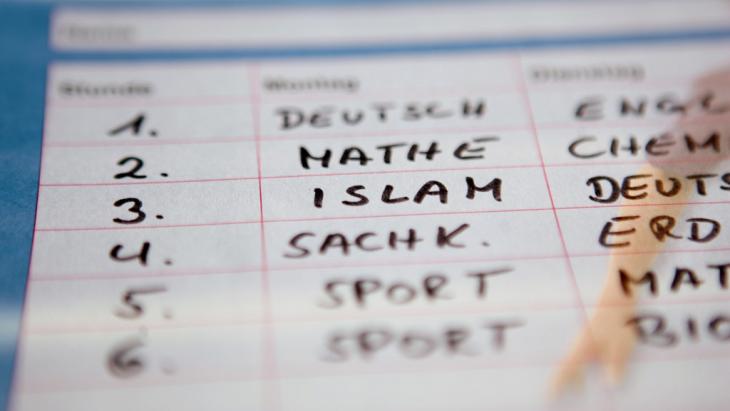 Name
Stunde Montag Dienstag
1. DEUTSCH ENGL
2. MATHE CHEM
3. ISLAM DEUTS
4. SACHK. ERD
5. SPORT MAT
6. SPORT BIO